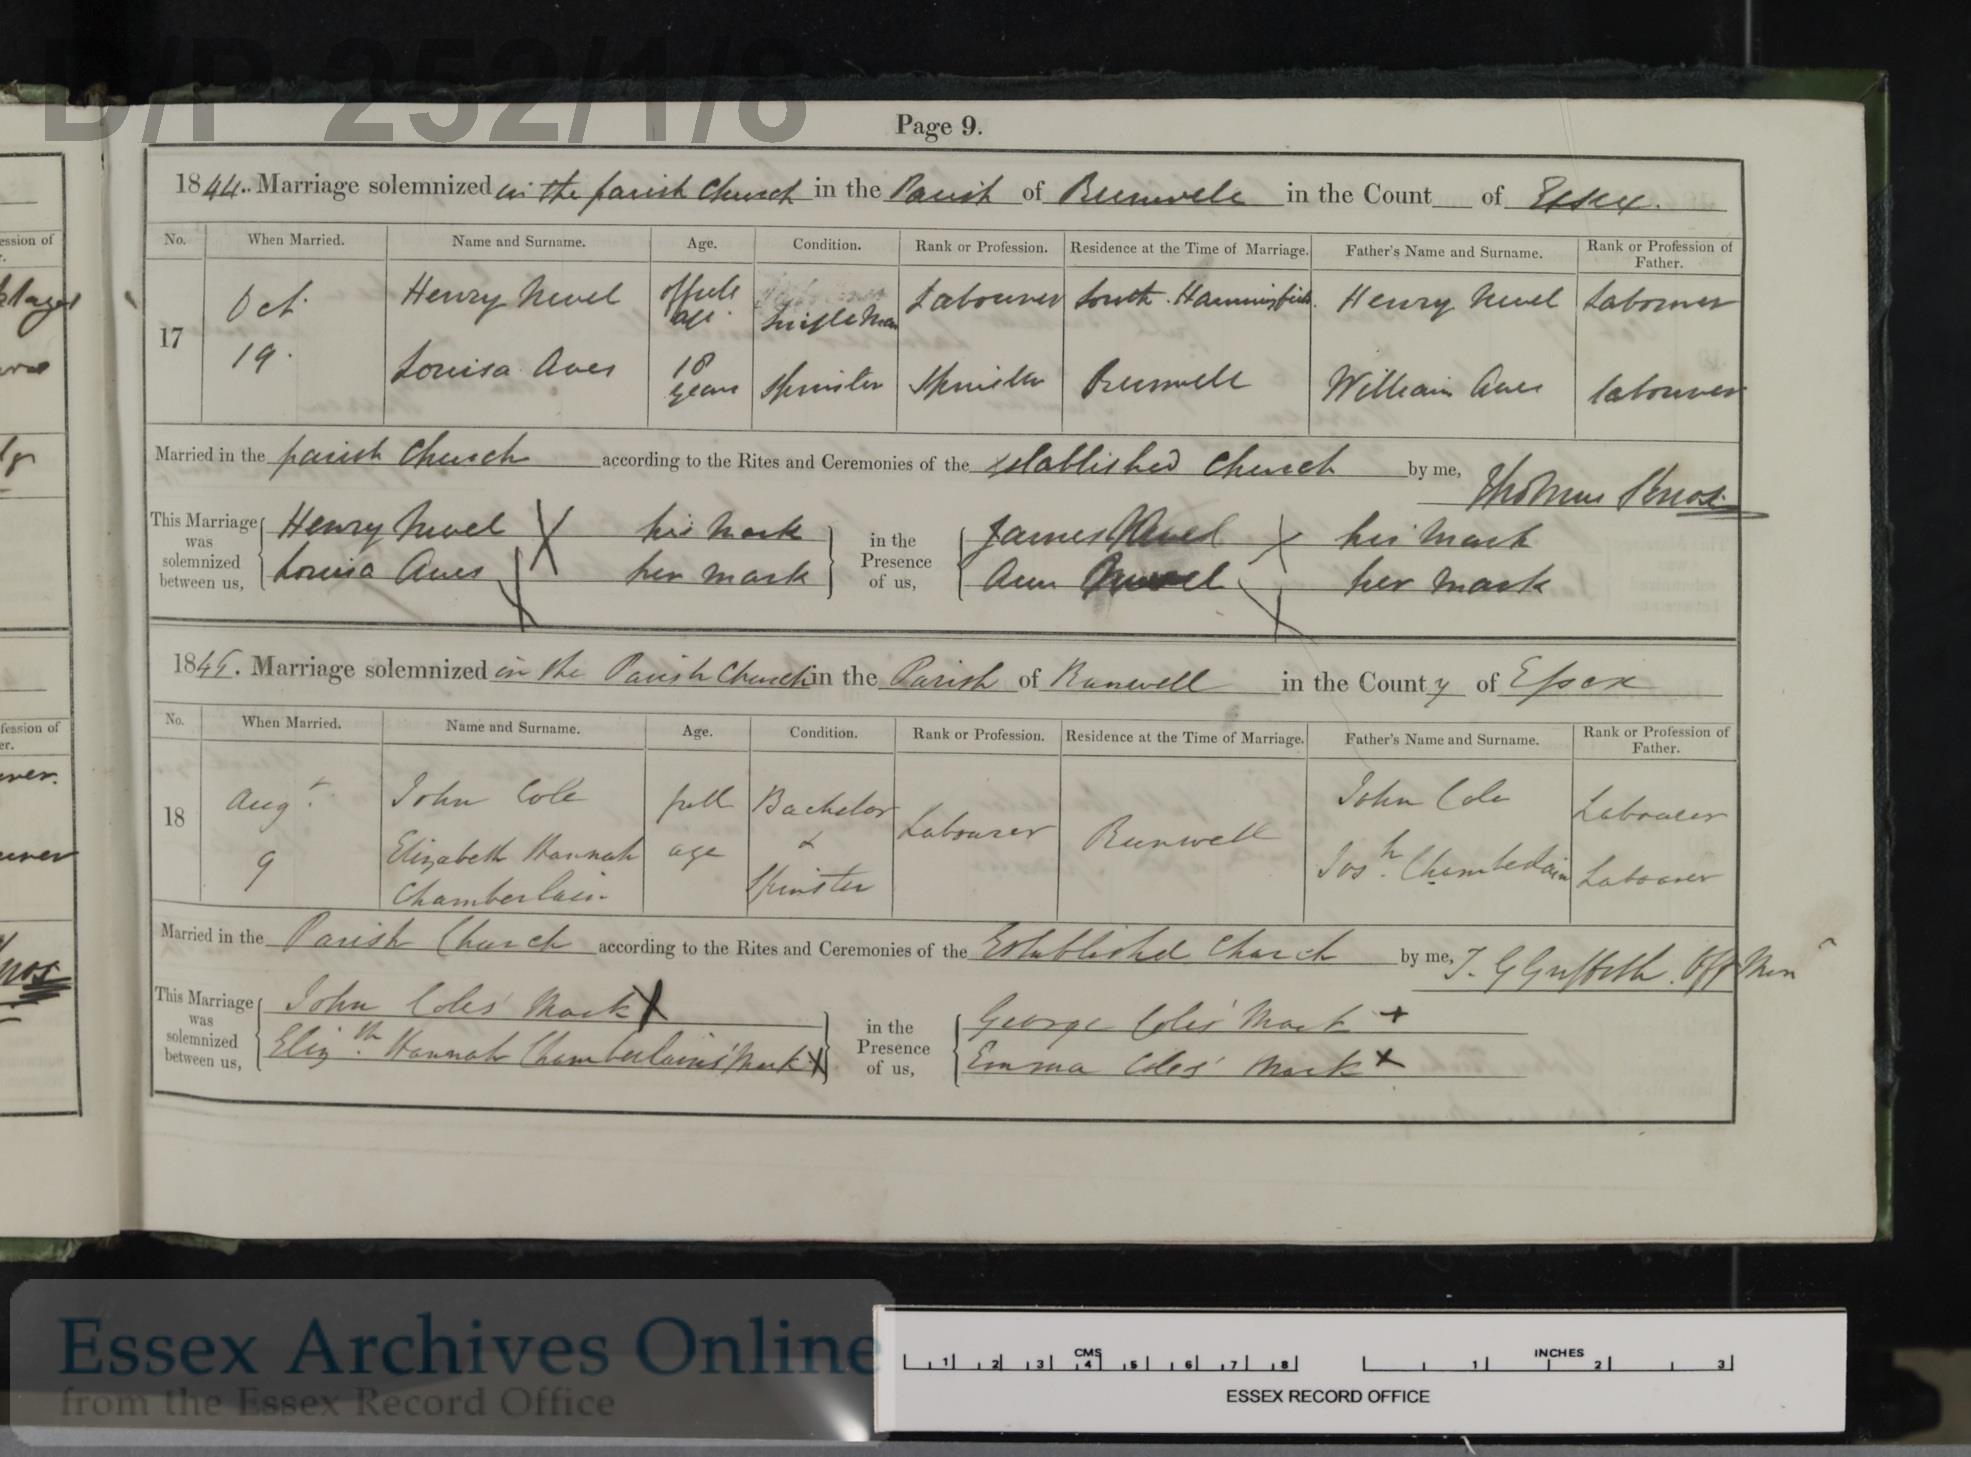 D/P 252/1/8
Page 9.
1844.. Marriage solemnized in the parish Church in the Parish of Runwell in the Count of Essex.
No. When Married. Name and Surname. Age. Condition. Rank or Profession. Residence at the Time of Marriage. Father's Name and Surname. Rank or Profession of Father.
17 Oct. 19. Henry Nevel of full age. Single Man Labourer South Hanningfield. Henry Nevel Labourer
Louisa Aves 18 years Spinster Spinster Runwell William Aves labourer
Married in the parish Church according to the Rites and Ceremonies of the established Church by me, Thomas
This Marriage was solemnized between us, Henry Nevel X his Mark in the Presence of us, James Nevel X his Mark
Louisa Aves X her mark Ann Nevel X her Mark
1845. Marriage solemnized in the Parish Church in the Parish of Runwell in the County of Essex
No. When Married. Name and Surname. Age. Condition. Rank or Profession. Residence at the Time of Marriage. Father's Name and Surname. Rank or Profession of Father.
18 Augt. 9 John Cole full age Bachelor & Labourer Runwell John Cole Labourer
Elizabeth Hannah Chamberlain Spinster Josh. Chamberlain Labourer
Married in the Parish Church according to the Rites and Ceremonies of the Established Church by me, T. G Griffith. Off Minr
This Marriage was solemnized between us, John Coles' Mark X in the Presence of us, George Coles' Mark +
Elizth. Hannah Chamberlains' Mark X Emma Coles' Mark X
Essex Archives Online
from the Essex Record Office
CMS 1 2 3 4 5 6 7 8 INCHES 1 2 3
ESSEX RECORD OFFICE